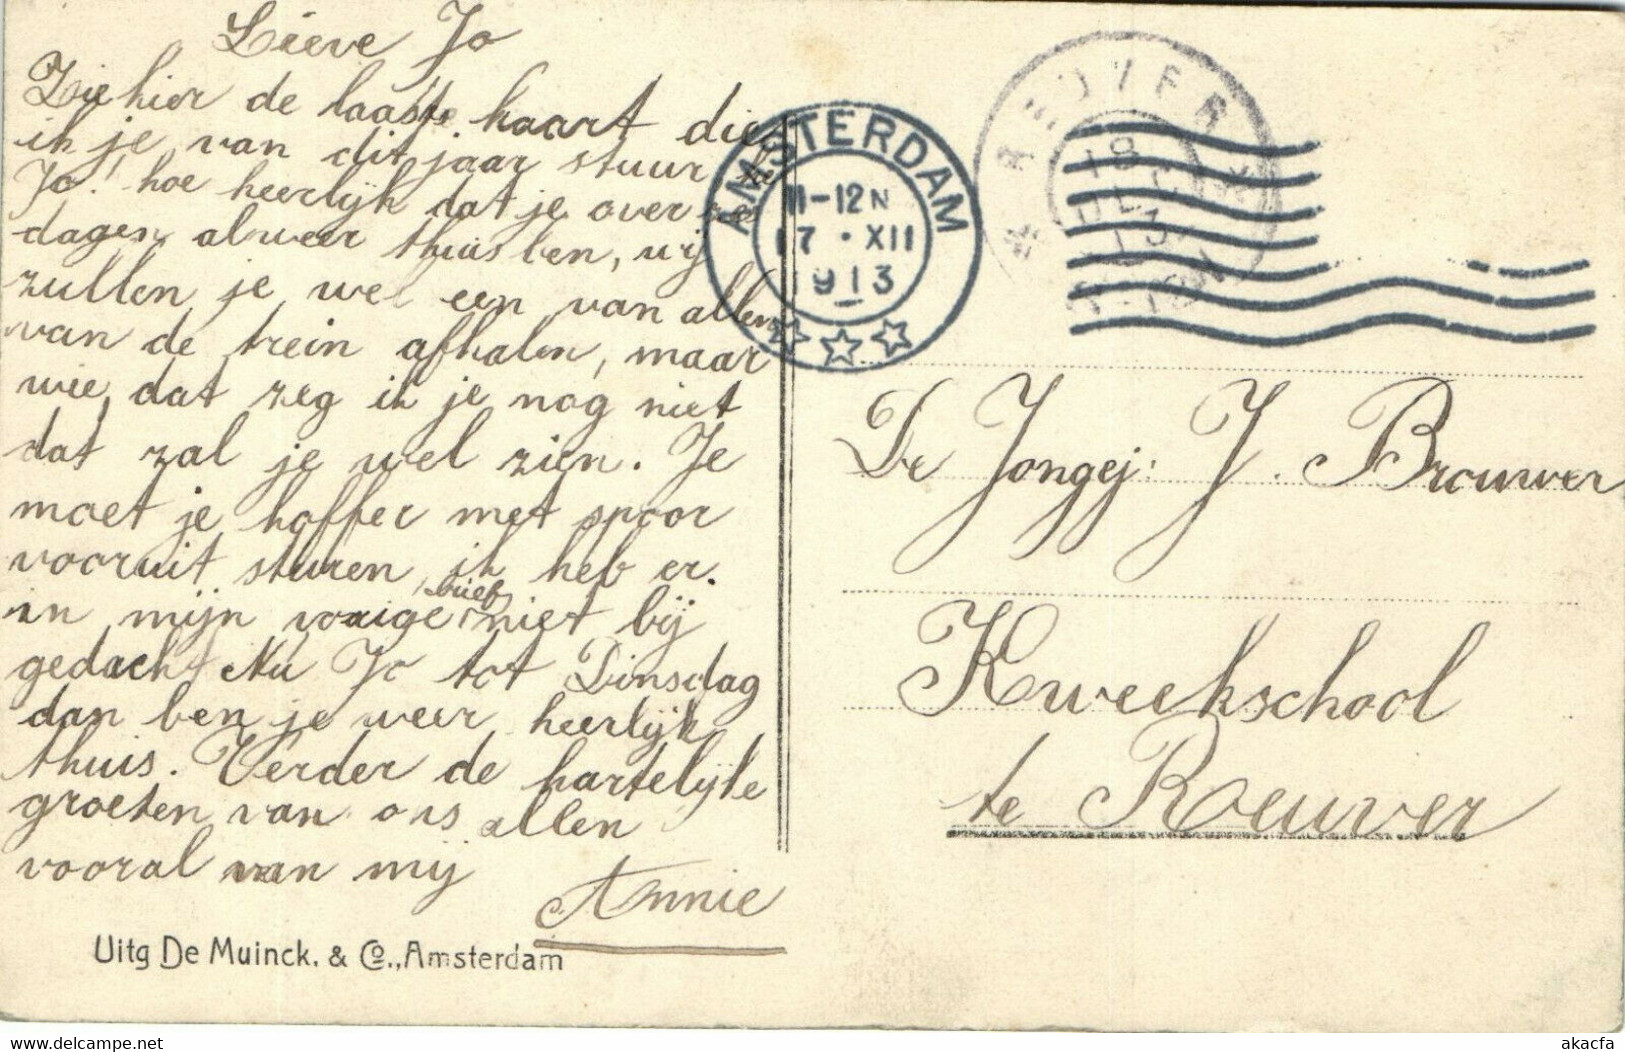 Lieve Jo
Zie hier de laatste kaart die
ik je van dit jaar stuur
Jo! hoe heerlijk dat je over
dagen alweer thuis ben, wij
zullen je wel een van allen
van de trein afhalen, maar
wie, dat zeg ik je nog niet
dat zal je wel zien. Je
moet je koffer met spoor
vooruit sturen, ik heb er.
in mijn vorige brief niet bij
gedacht Nu Jo tot Dinsdag
dan ben je weer heerlijk
thuis. Verder de hartelijke
groeten van ons allen
vooral van mij
Annie
Uitg De Muinck. & Co., Amsterdam
AMSTERDAM
11-12N
17 · XII
1913
18
DEC
13
De Jongej: J. Brouwer
Kweekschool
te Reuver
delcampe.net
akacfa